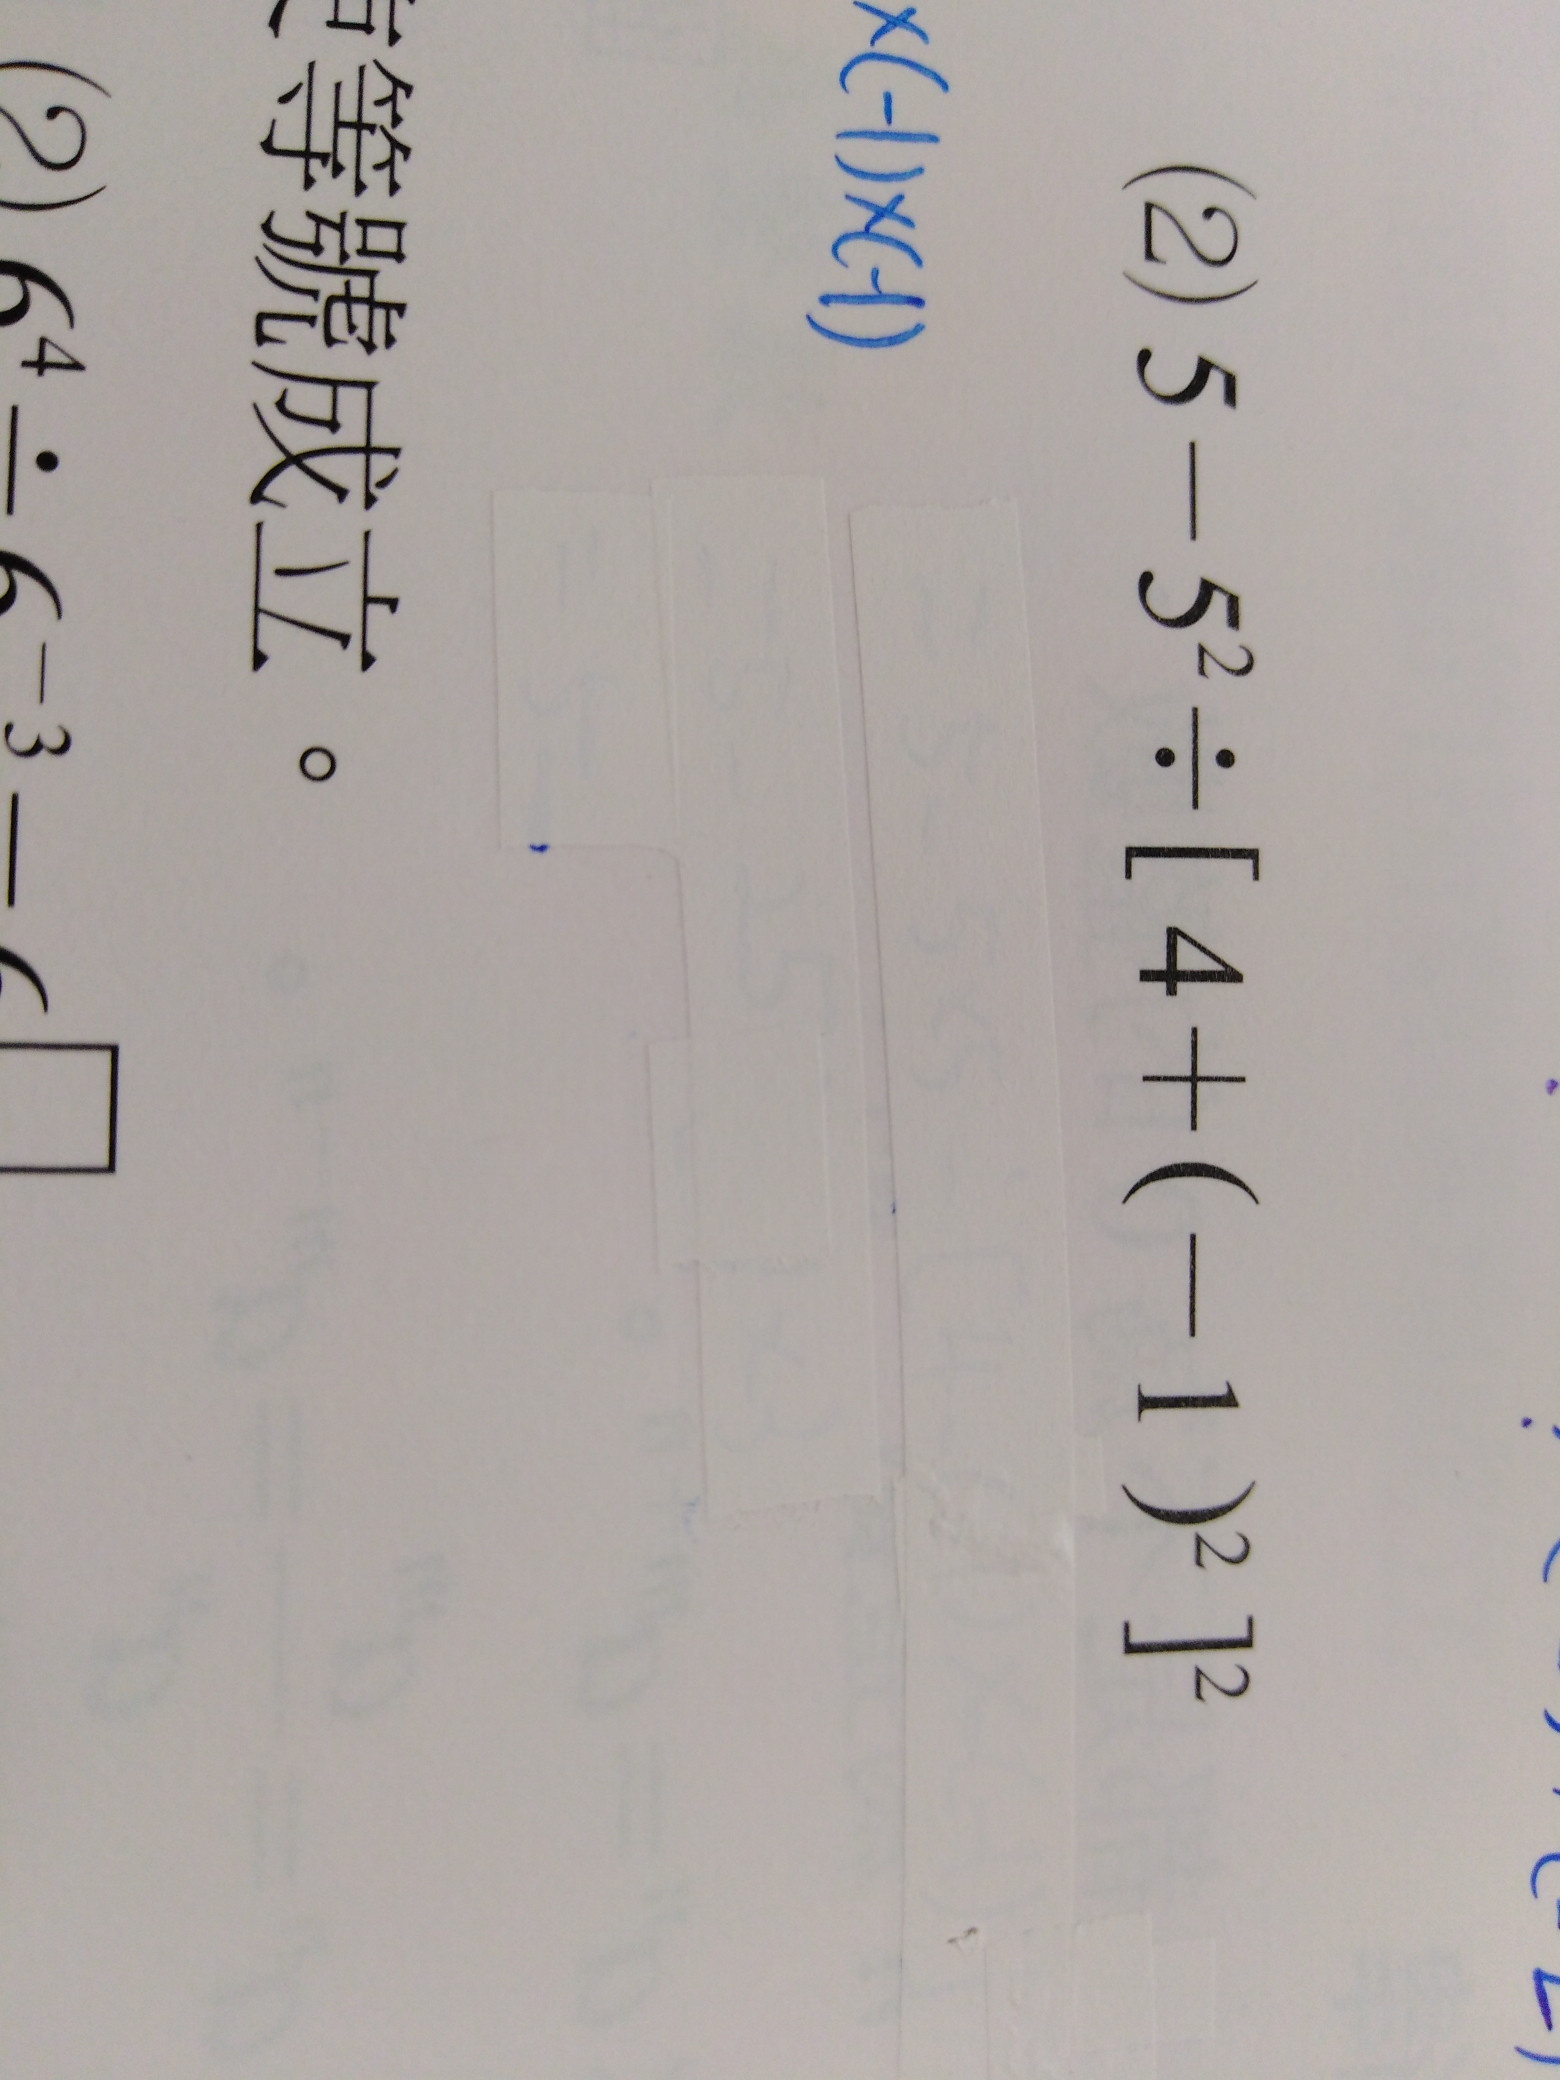 (2) 5 － 5² ÷ [ 4 ＋ ( － 1 )² ]²
x(-1)x(-1)
等號成立。
(2) 6⁴ ÷ 6⁻³ － 6□